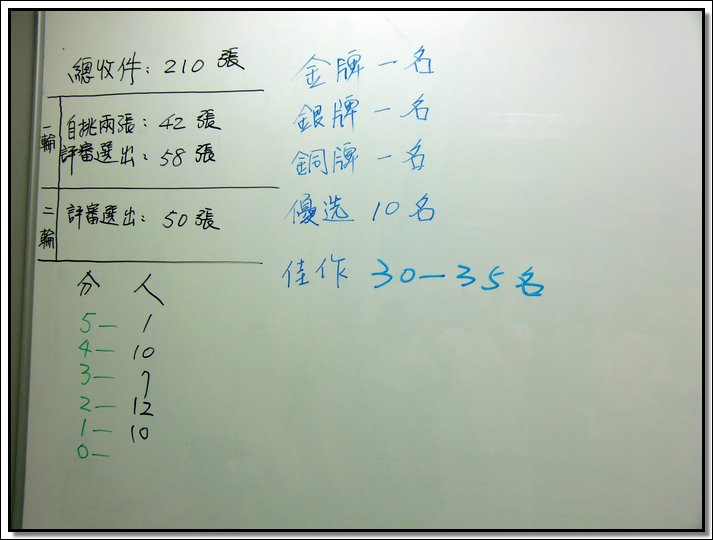 總收件：210 張
一輪
自挑兩張：42 張
評審選出：58 張
二輪
評審選出：50 張
分 人
5— 1
4— 10
3— 7
2— 12
1— 10
0—
金牌 一名
銀牌 一名
銅牌 一名
優选 10 名
佳作 30—35 名